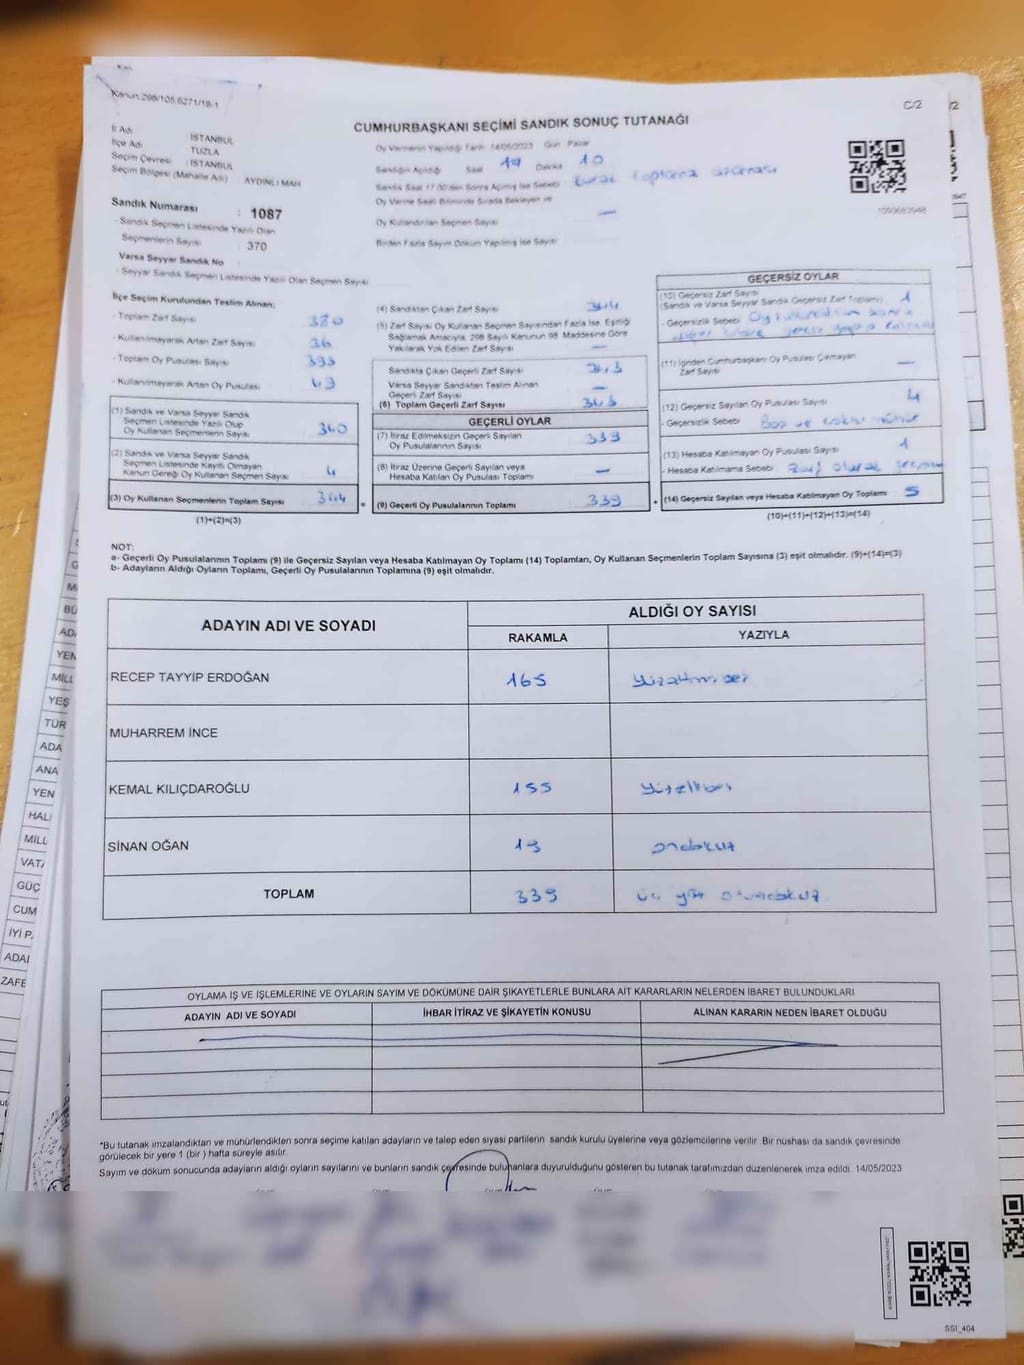 Kanun:298/105;6271/18-1
C/2
CUMHURBAŞKANI SEÇİMİ SANDIK SONUÇ TUTANAĞI
İl Adı : İSTANBUL
İlçe Adı : TUZLA
Seçim Çevresi : İSTANBUL
Seçim Bölgesi (Mahalle Adı) : AYDINLI MAH
Sandık Numarası : 1087
- Sandık Seçmen Listesinde Yazılı Olan
Seçmenlerin Sayısı : 370
Varsa Seyyar Sandık No :
- Seyyar Sandık Seçmen Listesinde Yazılı Olan Seçmen Sayısı
Oy Vermenin Yapıldığı Tarih 14/05/2023 Gün Pazar
Sandığın Açıldığı Saat 17 Dakika 10
Sandık Saat 17.00'den Sonra Açılmış İse Sebebi Evrak toplama
Oy Verme Saati Bitiminde Sırada Bekleyen ve
Oy Kullandırılan Seçmen Sayısı —
Birden Fazla Sayım Döküm Yapılmış İse Sayısı
1093683948
İlçe Seçim Kurulundan Teslim Alınan;
- Toplam Zarf Sayısı 380
- Kullanılmayarak Artan Zarf Sayısı 36
- Toplam Oy Pusulası Sayısı 393
- Kullanılmayarak Artan Oy Pusulası 49
(1) Sandık ve Varsa Seyyar Sandık
Seçmen Listesinde Yazılı Olup
Oy Kullanan Seçmenlerin Sayısı 340
(2) Sandık ve Varsa Seyyar Sandık
Seçmen Listesinde Kayıtlı Olmayan
Kanun Gereği Oy Kullanan Seçmen Sayısı 4
(3) Oy Kullanan Seçmenlerin Toplam Sayısı 344
(1)+(2)=(3)
(4) Sandıktan Çıkan Zarf Sayısı 344
(5) Zarf Sayısı Oy Kullanan Seçmen Sayısından Fazla İse, Eşitliği
Sağlamak Amacıyla, 298 Sayılı Kanunun 98. Maddesine Göre
Yakılarak Yok Edilen Zarf Sayısı —
Sandıkta Çıkan Geçerli Zarf Sayısı 343
Varsa Seyyar Sandıktan Teslim Alınan
Geçerli Zarf Sayısı —
(6) Toplam Geçerli Zarf Sayısı 343
GEÇERLİ OYLAR
(7) İtiraz Edilmeksizin Geçerli Sayılan
Oy Pusulalarının Sayısı 339
(8) İtiraz Üzerine Geçerli Sayılan veya
Hesaba Katılan Oy Pusulası Toplamı —
(9) Geçerli Oy Pusulalarının Toplamı 339
GEÇERSİZ OYLAR
(10) Geçersiz Zarf Sayısı
(Sandık ve Varsa Seyyar Sandık Geçersiz Zarf Toplamı) 1
- Geçersizlik Sebebi: Oy kullandıktan sonra
(11) İçinden Cumhurbaşkanı Oy Pusulası Çıkmayan
Zarf Sayısı —
(12) Geçersiz Sayılan Oy Pusulası Sayısı 4
- Geçersizlik Sebebi Boş ve
(13) Hesaba Katılmayan Oy Pusulası Sayısı 1
- Hesaba Katılmama Sebebi olarak geçersiz
(14) Geçersiz Sayılan veya Hesaba Katılmayan Oy Toplamı 5
(10)+(11)+(12)+(13)=(14)
NOT:
a- Geçerli Oy Pusulalarının Toplamı (9) ile Geçersiz Sayılan veya Hesaba Katılmayan Oy Toplamı (14) Toplamları, Oy Kullanan Seçmenlerin Toplam Sayısına (3) eşit olmalıdır. (9)+(14)=(3)
b- Adayların Aldığı Oyların Toplamı, Geçerli Oy Pusulalarının Toplamına (9) eşit olmalıdır.
ADAYIN ADI VE SOYADI
ALDIĞI OY SAYISI
RAKAMLA YAZIYLA
RECEP TAYYİP ERDOĞAN 165 yüzaltmışbeş
MUHARREM İNCE
KEMAL KILIÇDAROĞLU 155 yüzellibeş
SİNAN OĞAN 19 ondokuz
TOPLAM 339 üç yüz otuzdokuz
OYLAMA İŞ VE İŞLEMLERİNE VE OYLARIN SAYIM VE DÖKÜMÜNE DAİR ŞİKAYETLERLE BUNLARA AİT KARARLARIN NELERDEN İBARET BULUNDUKLARI
ADAYIN ADI VE SOYADI İHBAR İTİRAZ VE ŞİKAYETİN KONUSU ALINAN KARARIN NEDEN İBARET OLDUĞU
*Bu tutanak imzalandıktan ve mühürlendikten sonra seçime katılan adayların ve talep eden siyasi partilerin sandık kurulu üyelerine veya gözlemcilerine verilir. Bir nüshası da sandık çevresinde
görülecek bir yere 1 (bir ) hafta süreyle asılır.
Sayım ve döküm sonucunda adayların aldığı oyların sayılarını ve bunların sandık çevresinde bulunanlara duyurulduğunu gösteren bu tutanak tarafımızdan düzenlenerek imza edildi. 14/05/2023
SSI_404